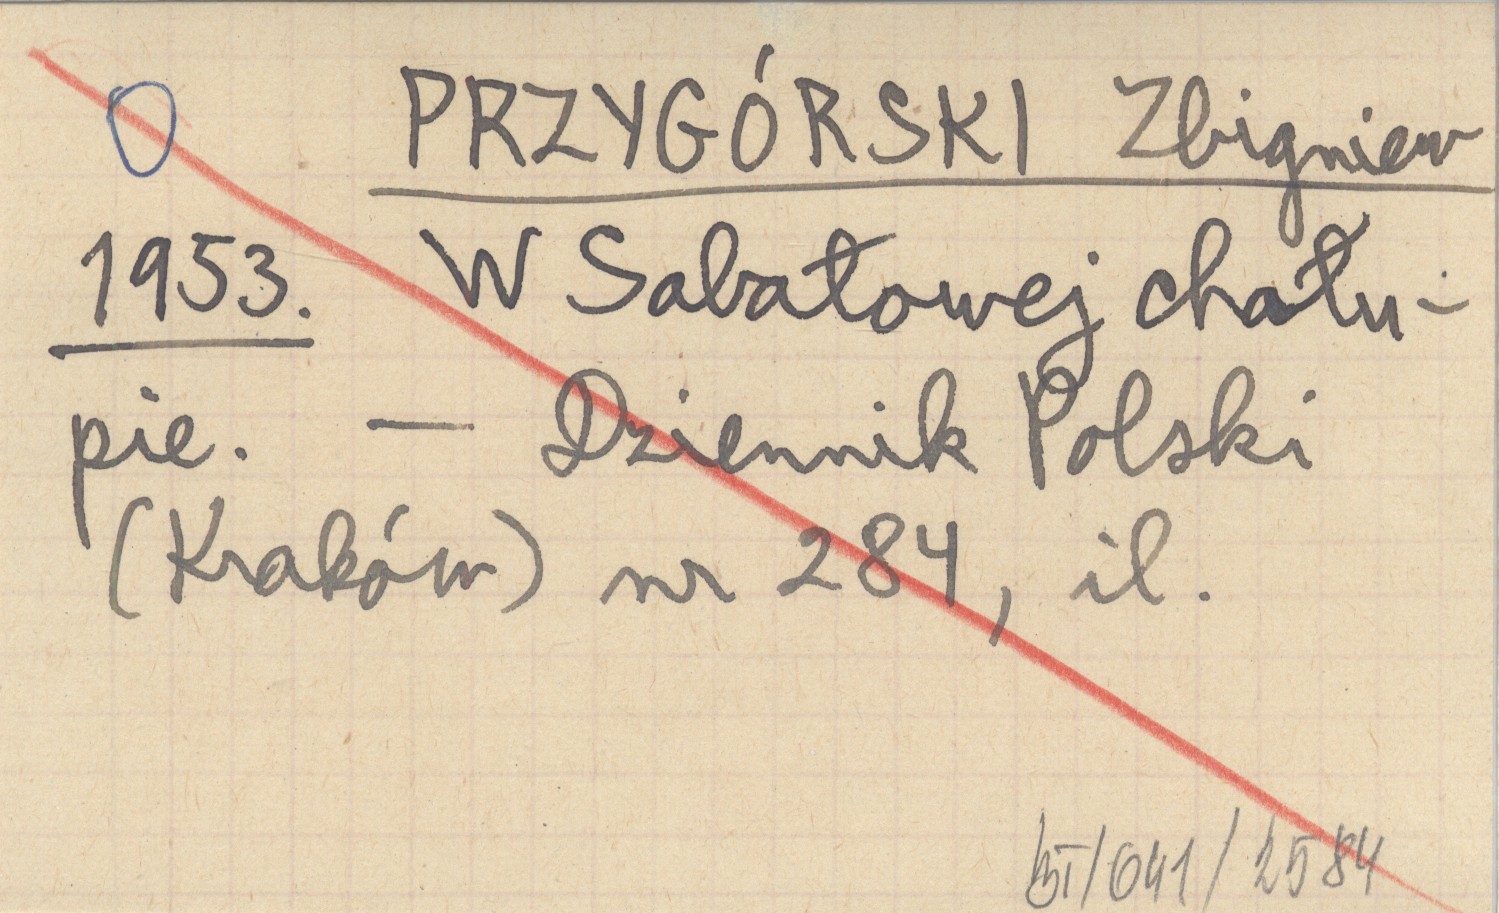 0 PRZYGÓRSKI Zbigniew
1953. W Sabałowej chału-
pie. — Dziennik Polski
(Kraków) nr 284, il.
BI/041/2584